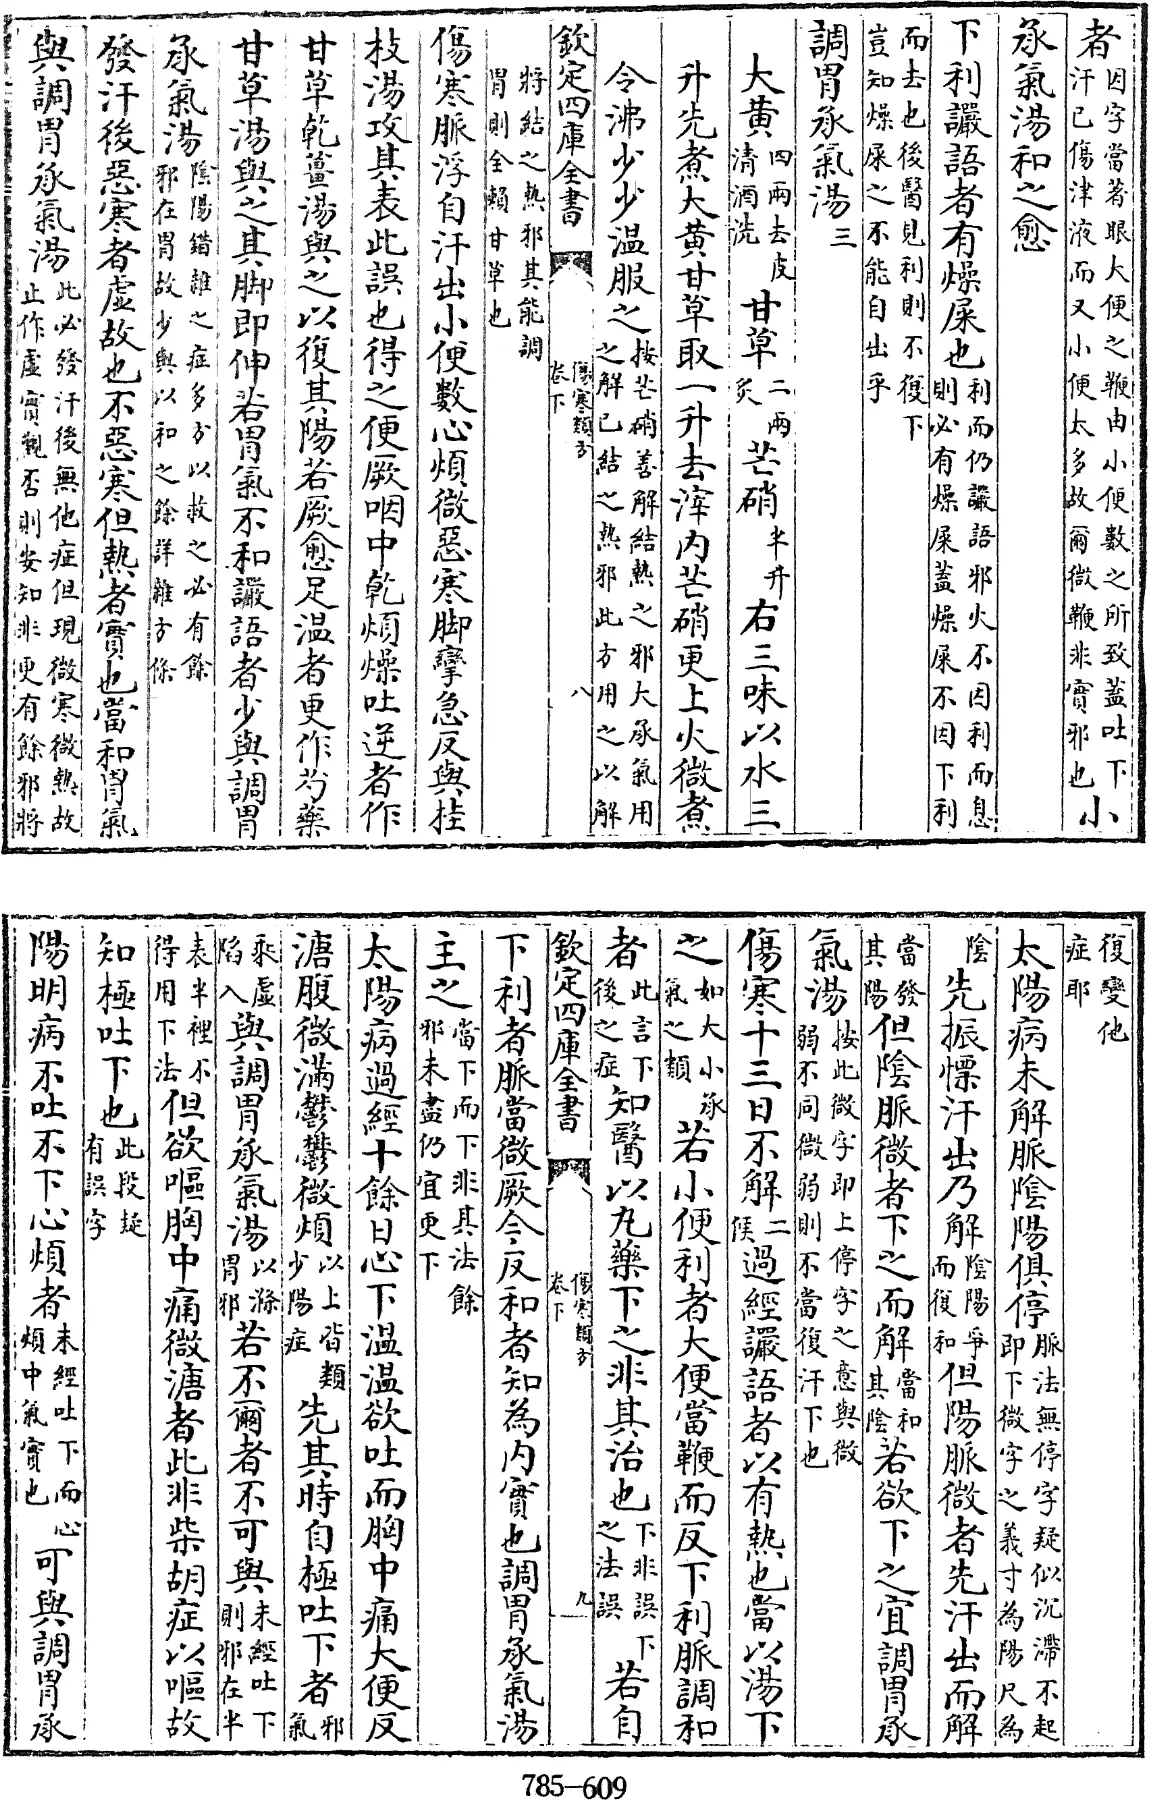 者因字當著眼大便之鞕由小便數之所致蓋吐下汗已傷津液而又小便太多故爾微鞕非實邪也小
承氣湯和之愈
下利讝語者有燥屎也利而仍讝語邪火不因利而息則必有燥屎蓋燥屎不因下利
而去也後醫見利則不復下豈知燥屎之不能自出乎
調胃承氣湯三
大黄四兩去皮清酒洗甘草二兩炙芒硝半升右三味以水三
升先煮大黄甘草取一升去滓内芒硝更上火微煮
令沸少少温服之按芒硝善解結熱之邪大承氣用之解已結之熱邪此方用之以解
欽定四庫全書 傷寒類方卷下 八
將結之熱邪其能調胃則全賴甘草也
傷寒脈浮自汗出小便數心煩微惡寒脚攣急反與桂
枝湯攻其表此誤也得之便厥咽中乾煩燥吐逆者作
甘草乾薑湯與之以復其陽若厥愈足温者更作芍藥
甘草湯與之其脚即伸若胃氣不和讝語者少與調胃
承氣湯陰陽錯雜之症多方以救之必有餘邪在胃故少與以和之餘詳雜方條
發汗後惡寒者虛故也不惡寒但熱者實也當和胃氣
與調胃承氣湯此必發汗後無他症但現微寒微熱故止作虛實觀否則安知非更有餘邪將
復變他症耶
太陽病未解脈陰陽俱停脈法無停字疑似沉滯不起即下微字之義寸為陽尺為
陰先振慄汗出乃解陰陽爭而復和但陽脈微者先汗出而解
當發其陽但陰脈微者下之而解當和其陰若欲下之宜調胃承
氣湯按此微字即上停字之意與微弱不同微弱則不當復汗下也
傷寒十三日不解二候過經讝語者以有熱也當以湯下
之如大小承氣之類若小便利者大便當鞕而反下利脈調和
者此言下後之症知醫以丸藥下之非其治也下非誤下之法誤若自
欽定四庫全書 傷寒類方卷下 九
下利者脈當微厥今反和者知為内實也調胃承氣湯
主之當下而下非其法餘邪未盡仍宜更下
太陽病過經十餘日心下温温欲吐而胸中痛大便反
溏腹微滿鬱鬱微煩以上皆類少陽症先其時自極吐下者邪氣
乘虛陷入與調胃承氣湯以滌胃邪若不爾者不可與未經吐下則邪在半
表半裡不得用下法但欲嘔胸中痛微溏者此非柴胡症以嘔故
知極吐下也此段疑有誤字
陽明病不吐不下心煩者未經吐下而心煩中氣實也可與調胃承
785-609